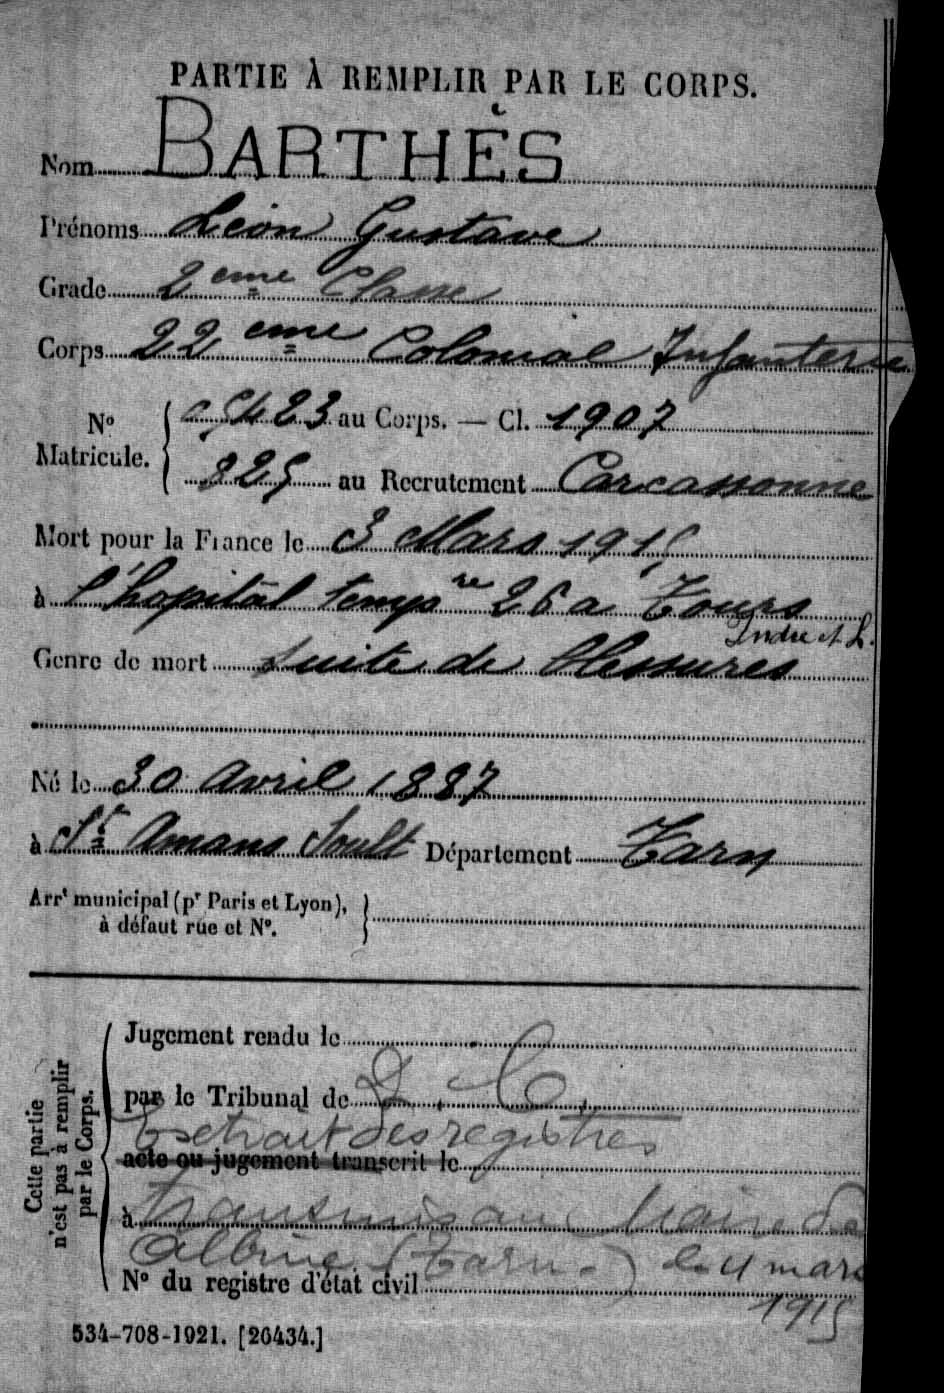 PARTIE À REMPLIR PAR LE CORPS.
Nom BARTHÈS
Prénoms Léon Gustave
Grade 2eme Classe
Corps 22eme Colonial Infanterie
No Matricule. 5423 au Corps. — Cl. 1907
825 au Recrutement Carcassonne
Mort pour la France le 3 Mars 1915
à l'hopital tempre 26 a Tours
Indre et L.
Genre de mort suite de blessures
Né le 30 Avril 1887
à St Amans Soult Département Tarn
Arrt municipal (pr Paris et Lyon),
à défaut rue et No.
Cette partie n'est pas à remplir par le Corps.
Jugement rendu le
par le Tribunal de D. C.
Extrait des registres
acte ou jugement transcrit le
à transmis au Maire de
Albine (Tarn.) le 4 mars
No du registre d'état civil
1915
534-708-1921. [26434.]